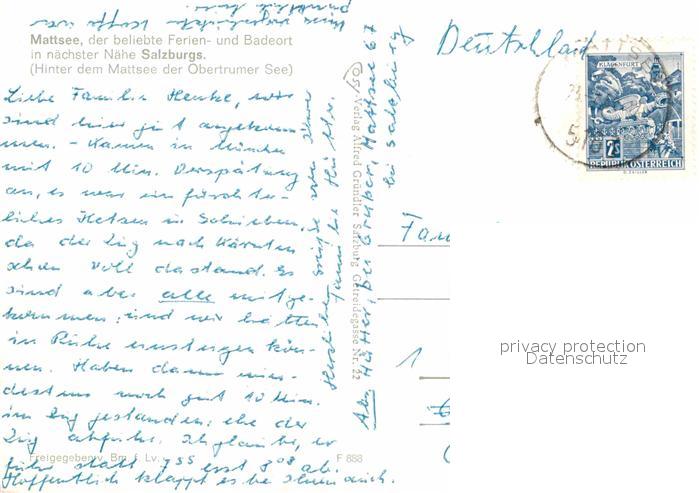 Mattsee, der beliebte Ferien- und Badeort
in nächster Nähe Salzburgs.
(Hinter dem Mattsee der Obertrumer See)
Liebe Familie Henkel, wir
sind hier gut angekom-
men. - Kamen in München
mit 10 Min. Verspätung
an, es war ein fürchter-
liches Hetzen u. Schieben,
da der Zug nach Kärnten
schon voll dastand. Es
sind aber alle mitge-
kommen, und wir hatten
in Ruhe einsteigen kön-
nen. Haben dann min-
destens noch gut 10 Min.
im Zug gestanden, ehe der
Zug abfuhr. Ich glaube, er
fuhr statt 7 55 erst 8 08 ab.
Hoffentlich klappt es bei Ihnen auch.
Herzliche Grüße von Ihrer
Familie
Freigegeben v. Bm. f. Lv.
F 888
051 Verlag Alfred Gründler Salzburg Getreidegasse Nr. 22
Abs. Hütter, bei Gruber, Mattsee 67
bei Salzburg
Deutschland
MATTSEE
KLAGENFURT
2 S
REPUBLIK ÖSTERREICH
Fam
1
privacy protection
Datenschutz